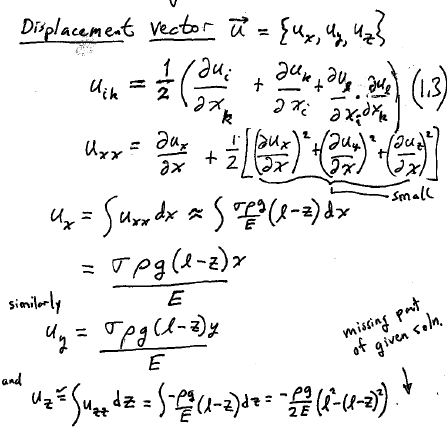 Displacement vector u⃗ = {u_x, u_y, u_z}
u_ik = 1/2 (∂u_i/∂x_k + ∂u_k/∂x_i + ∂u_l/∂x_i · ∂u_l/∂x_k) (1.3)
u_xx = ∂u_x/∂x + 1/2 [(∂u_x/∂x)² + (∂u_y/∂x)² + (∂u_z/∂x)²]
small
u_x = ∫ u_xx dx ≈ ∫ σρg/E (l-z) dx
= σρg(l-z)x / E
similarly
u_y = σρg(l-z)y / E
missing part
of given soln.
and
u_z ≈ ∫ u_zz dz = ∫ -ρg/E (l-z) dz = -ρg/2E (l²-(l-z)²)